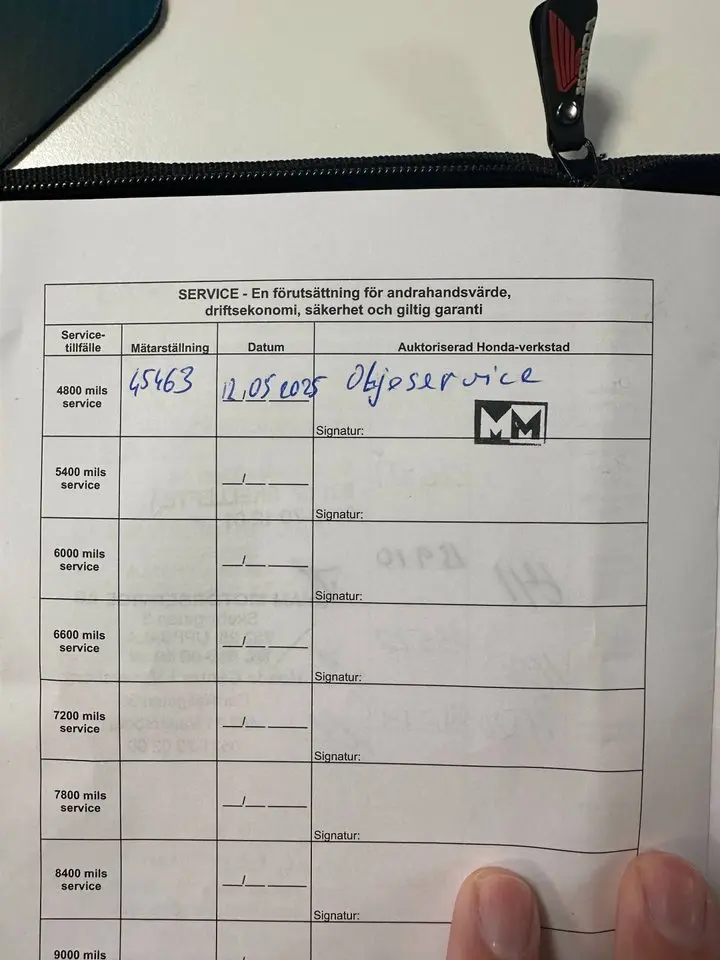 HONDA
SERVICE - En förutsättning för andrahandsvärde,
driftsekonomi, säkerhet och giltig garanti
Service-
tillfälle
Mätarställning
Datum
Auktoriserad Honda-verkstad
4800 mils
service
45463
12.05 2025
Oljeservice
Signatur:
MM
5400 mils
service
/
Signatur:
6000 mils
service
/
Signatur:
6600 mils
service
/
Signatur:
7200 mils
service
/
Signatur:
7800 mils
service
/
Signatur:
8400 mils
service
/
Signatur:
9000 mils